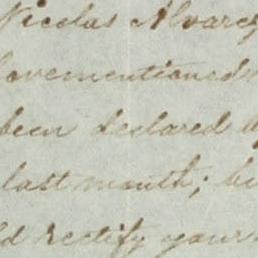 Nicolas Alvarez
bovementioned
been declared b
last month; bu
ld rectify your